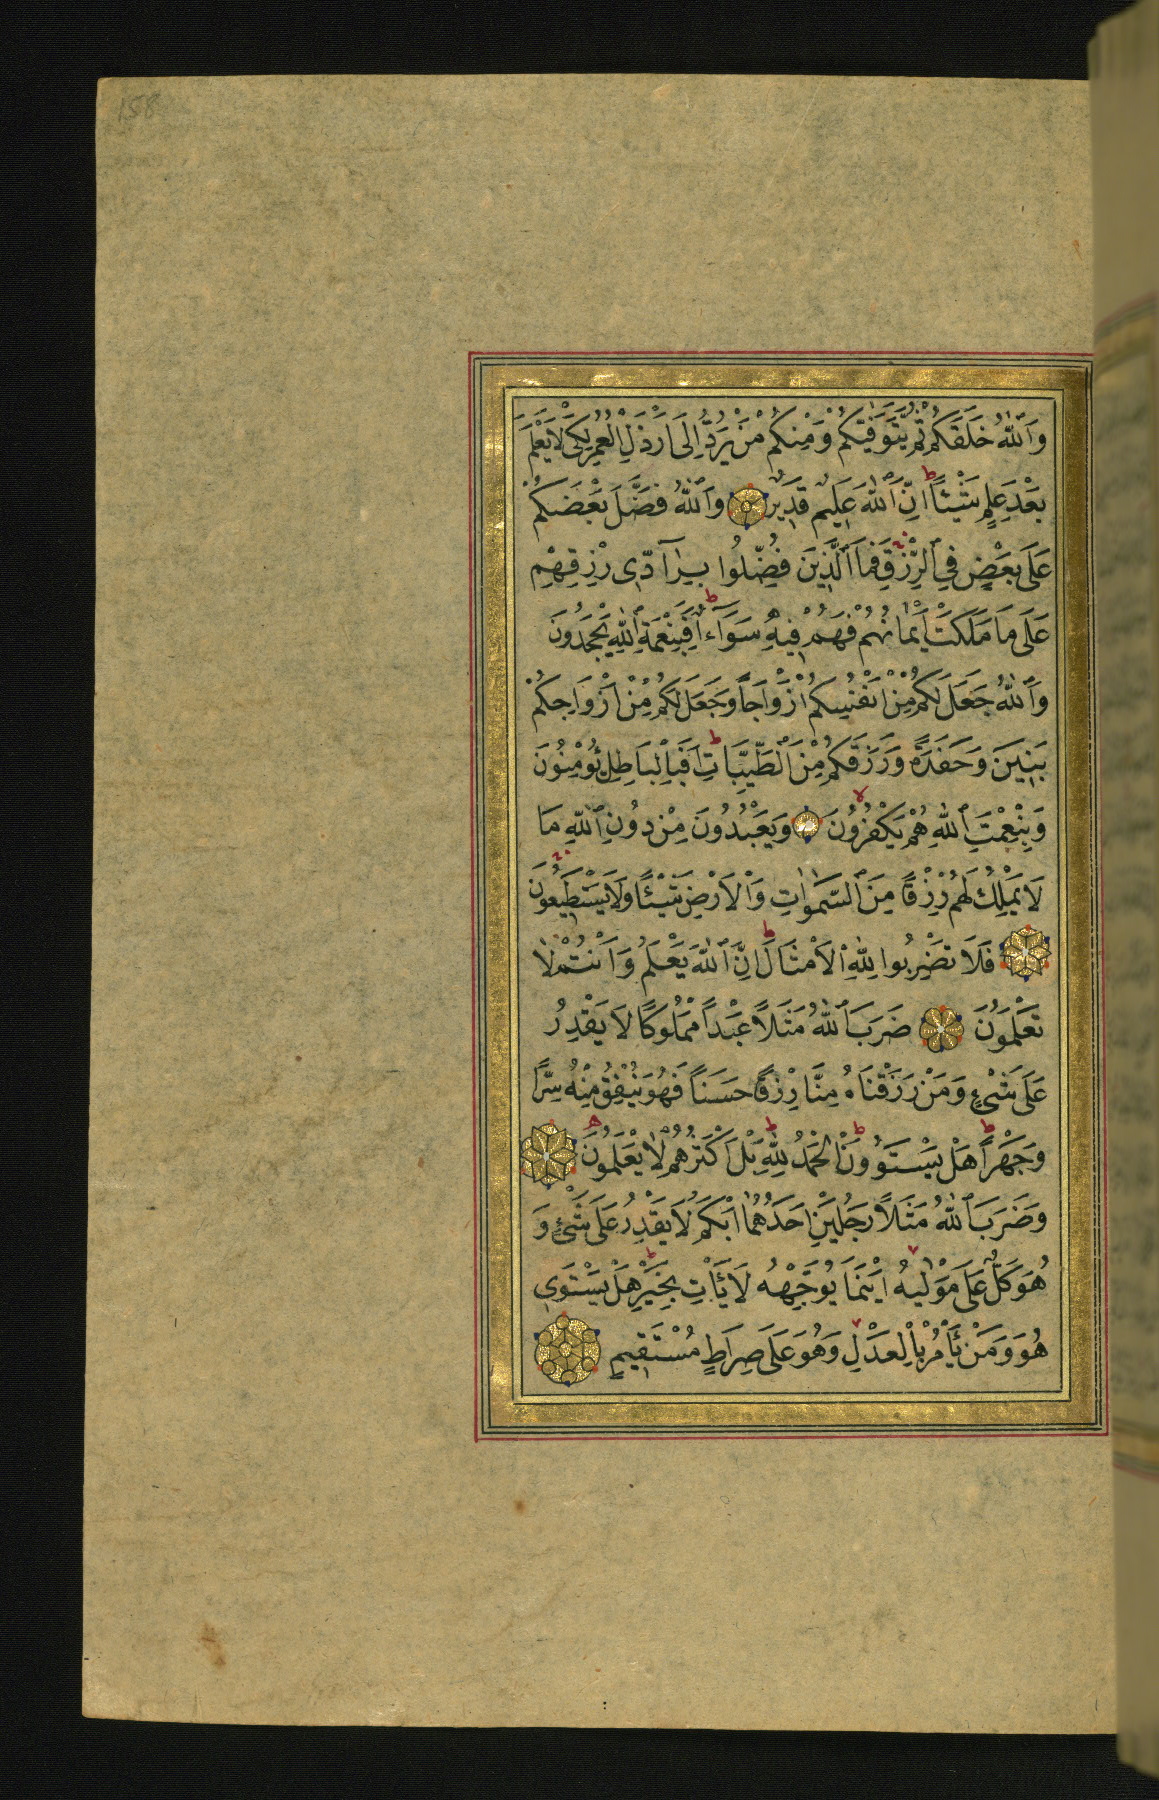 158
وَٱللّٰهُ خَلَقَكُمْ ثُمَّ يَتَوَفّٰيكُمْ وَمِنكُمْ مَنْ يُرَدُّ اِلَى اَرْذَلِ الْعُمُرِ لِكَىْ لَا يَعْلَمَ
بَعْدَ عِلْمٍ شَيْئًا ط اِنَّ ٱللّٰهَ عَلِيمٌ قَدِيرٌ وَٱللّٰهُ فَضَّلَ بَعْضَكُمْ
عَلَى بَعْضٍ فِي ٱلرِّزْقِ فَمَا ٱلَّذِينَ فُضِّلُوا بِرَآدِّى رِزْقِهِمْ
عَلَى مَا مَلَكَتْ اَيْمَانُهُمْ فَهُمْ فِيهِ سَوَآءٌ ط اَفَبِنِعْمَةِ ٱللّٰهِ يَجْحَدُونَ
وَٱللّٰهُ جَعَلَ لَكُمْ مِنْ اَنْفُسِكُمْ اَزْوَاجًا وَجَعَلَ لَكُمْ مِنْ اَزْوَاجِكُمْ
بَنِينَ وَحَفَدَةً وَرَزَقَكُمْ مِنَ ٱلطَّيِّبَاتِ ط اَفَبِالْبَاطِلِ يُؤْمِنُونَ
وَبِنِعْمَتِ ٱللّٰهِ هُمْ يَكْفُرُونَ لا وَيَعْبُدُونَ مِنْ دُونِ ٱللّٰهِ مَا
لَا يَمْلِكُ لَهُمْ رِزْقًا مِنَ ٱلسَّمٰوَاتِ وَالْاَرْضِ شَيْئًا وَلَا يَسْتَطِيعُونَ
فَلَا تَضْرِبُوا لِلّٰهِ الْاَمْثَالَ ط اِنَّ ٱللّٰهَ يَعْلَمُ وَاَنْتُمْ لَا
تَعْلَمُونَ ضَرَبَ ٱللّٰهُ مَثَلًا عَبْدًا مَمْلُوكًا لَا يَقْدِرُ
عَلَى شَىْءٍ وَمَنْ رَزَقْنَاهُ مِنَّا رِزْقًا حَسَنًا فَهُوَ يُنْفِقُ مِنْهُ سِرًّا
وَجَهْرًا ط هَلْ يَسْتَوُونَ ط الْحَمْدُ لِلّٰهِ ط بَلْ اَكْثَرُهُمْ لَا يَعْلَمُونَ
وَضَرَبَ ٱللّٰهُ مَثَلًا رَجُلَيْنِ اَحَدُهُمَا اَبْكَمُ لَا يَقْدِرُ عَلَى شَىْءٍ وَ
هُوَ كَلٌّ عَلَى مَوْلٰيهُ اَيْنَمَا يُوَجِّهْهُ لَا يَأْتِ بِخَيْرٍ ط هَلْ يَسْتَوِى
هُوَ وَمَنْ يَأْمُرُ بِالْعَدْلِ وَهُوَ عَلَى صِرَاطٍ مُسْتَقِيمٍ